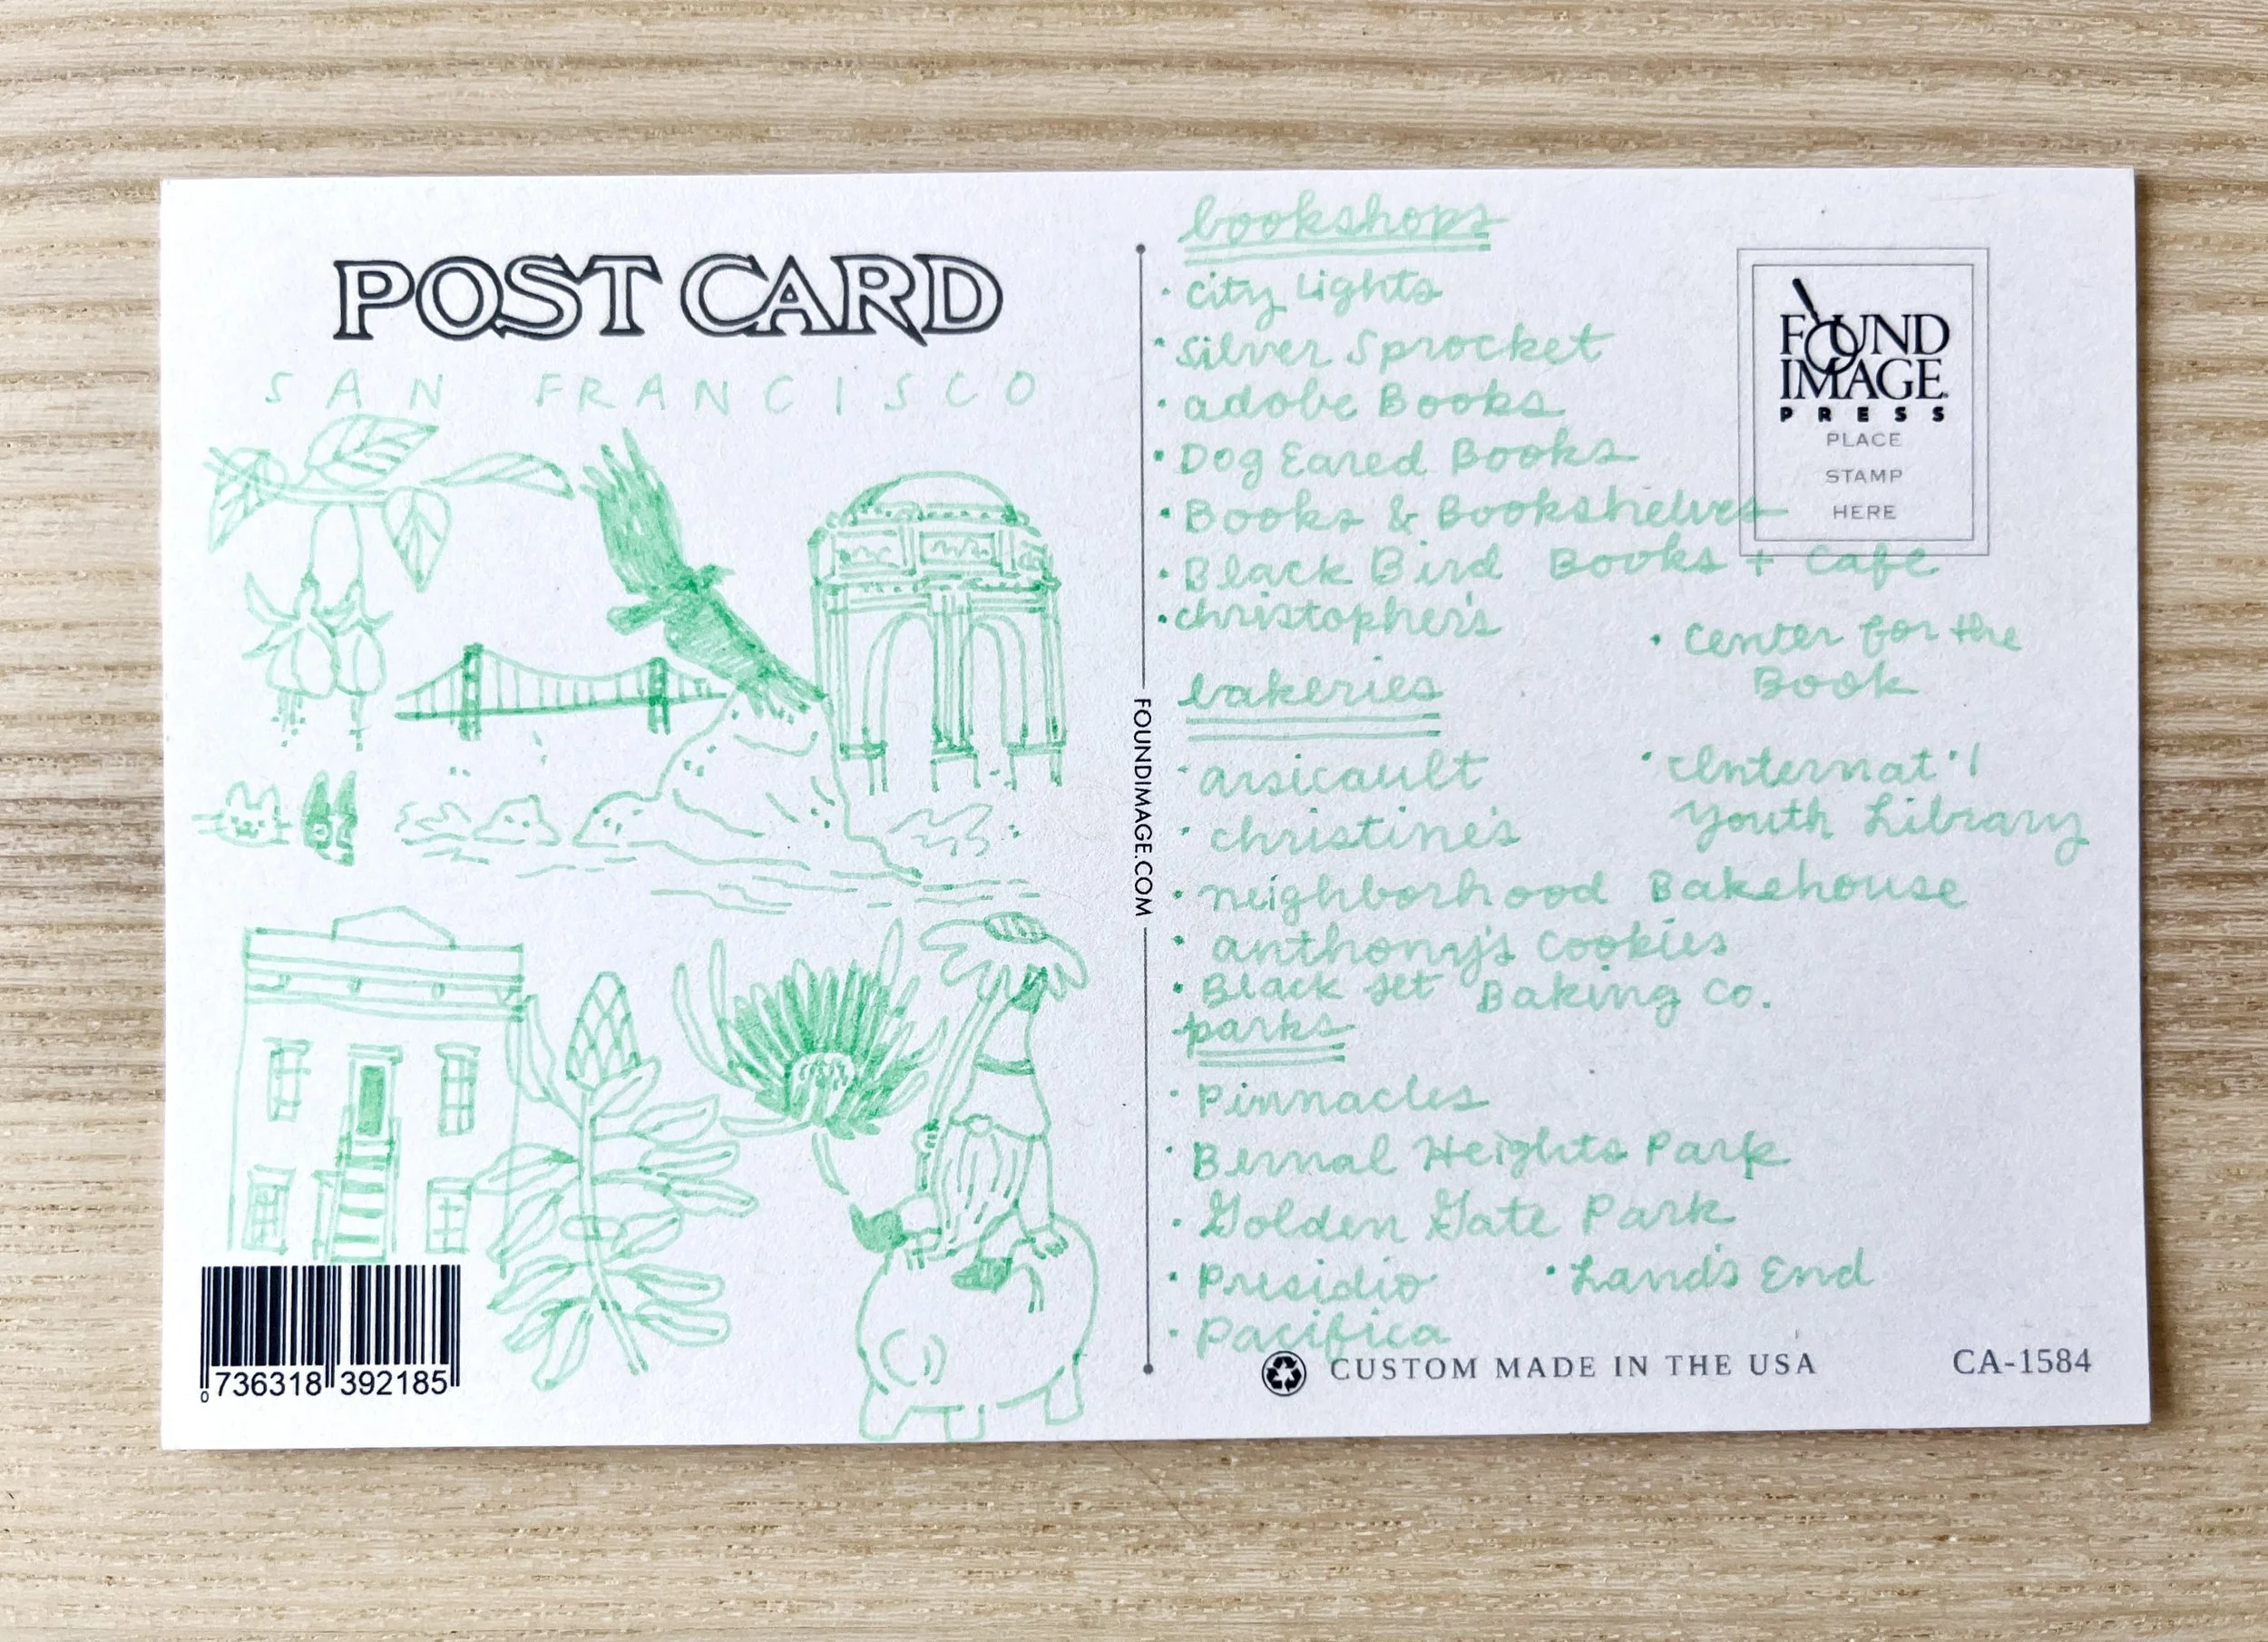 POST CARD
SAN FRANCISCO
0 736318 392185
FOUNDIMAGE.COM
bookshops
· City Lights
· Silver Sprocket
· adobe Books
· Dog Eared Books
· Books & Bookshelves
· Black Bird Books + Cafe
· christopher's
· Center for the
Book
· Internat'l
Youth Library
bakeries
· arsicault
· christine's
· neighborhood Bakehouse
· anthony's Cookies
· Black Jet Baking Co.
parks
· Pinnacles
· Bernal Heights Park
· Golden Gate Park
· Presidio
· Land's End
· Pacifica
FOUND
IMAGE
PRESS
PLACE
STAMP
HERE
CUSTOM MADE IN THE USA
CA-1584